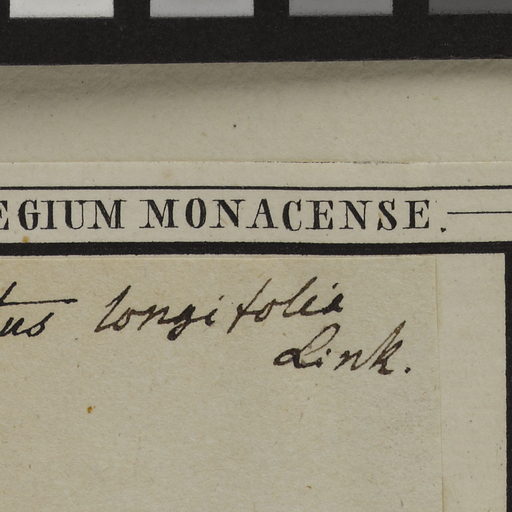 EGIUM MONACENSE.
tus longifolia
Link.